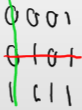 0001
0101
1011